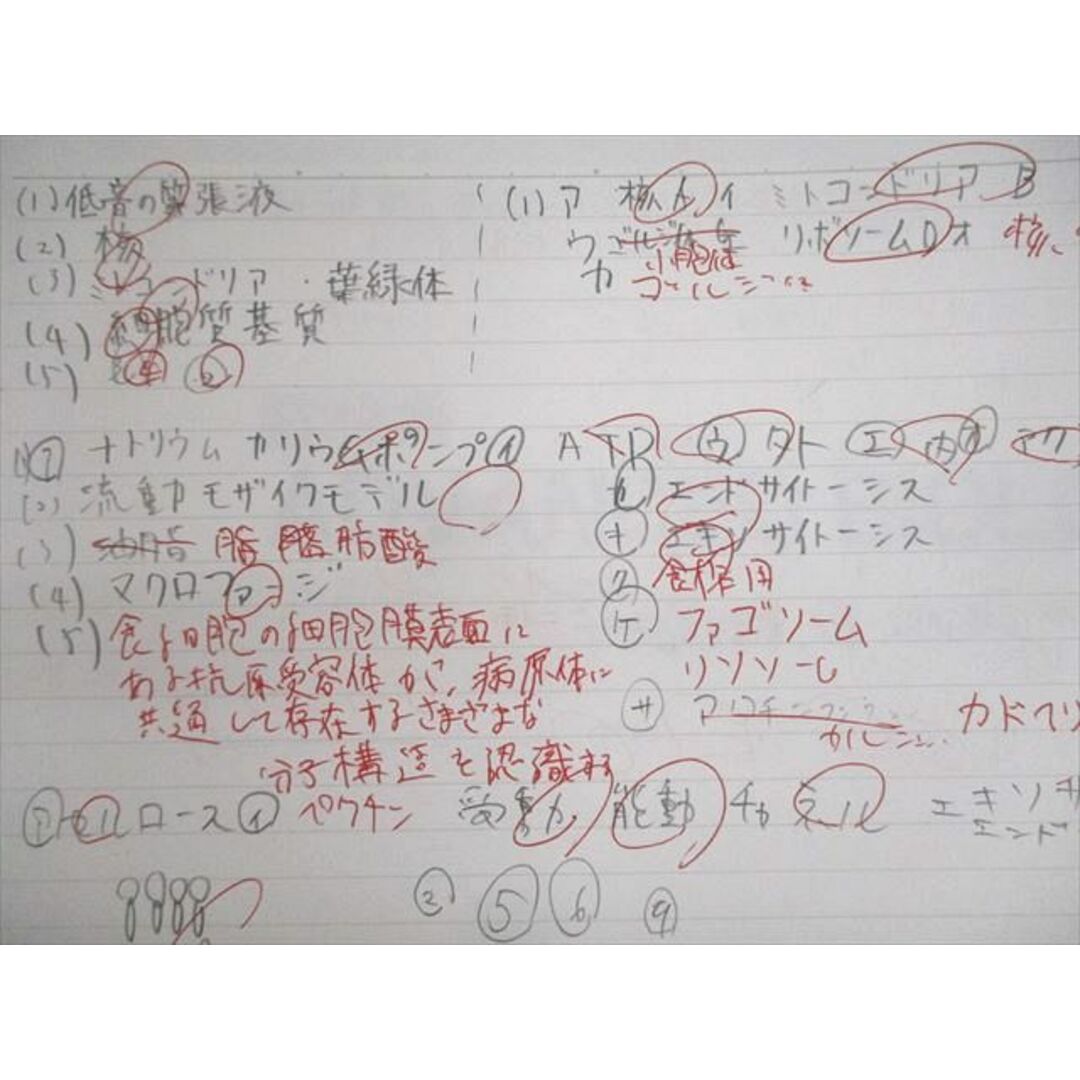 (1) 低音の 張液
(2) 核
(3) ミトコンドリア・葉緑体
(4) 細胞質基質
(5) ④ ②
(1) ア 核 A イ ミトコンドリア B
ウ リボソーム D オ 核
小胞体
カ ゴルジ体
ア ナトリウムカリウムポンプ イ ATP ウ タト エ 内 オ
(2) 流動モザイクモデル
(3) 油脂 脂 脂肪酸
(4) マクロファージ
(5) 食細胞の細胞膜表面に
ある抗原受容体が、病原体に
共通して存在するさまざまな
分子構造を認識する
カ エンドサイトーシス
キ エキソサイトーシス
ク 食作用
ケ ファゴソーム
リソソーム
サ カドヘリ
ア セルロース イ ペクチン 受動 能動 チャネル エキソサ
エンド
② ⑤ ⑥ ⑨